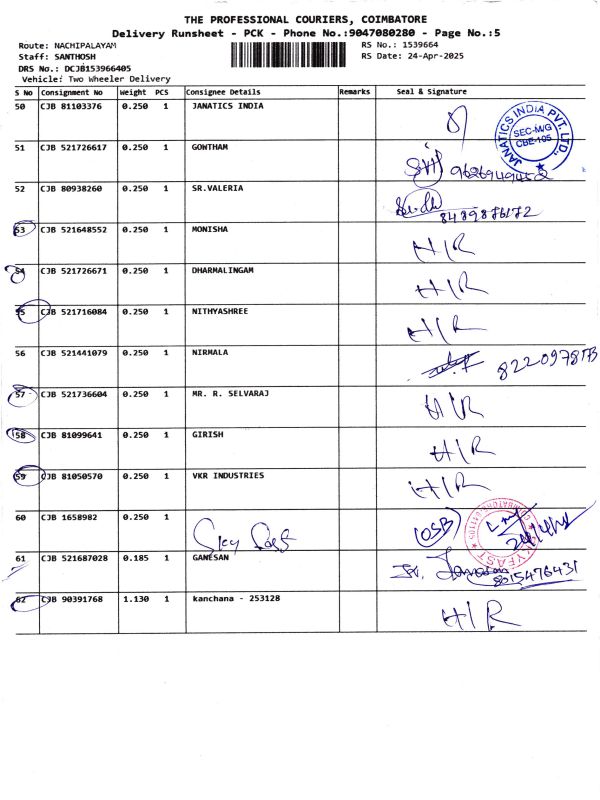 THE PROFESSIONAL COURIERS, COIMBATORE
Delivery Runsheet - PCK - Phone No.:9047080280 - Page No.:5
Route: NACHIPALAYAM
RS No.: 1539664
Staff: SANTHOSH
RS Date: 24-Apr-2025
DRS No.: DCJB153966405
Vehicle: Two Wheeler Delivery
S No Consignment No Weight PCS Consignee Details Remarks Seal & Signature
50 CJB 81103376 0.250 1 JANATICS INDIA
JANATICS INDIA PVT. LTD.,
SEC-M/G
CBE-105
51 CJB 521726617 0.250 1 GOWTHAM
52 CJB 80938260 0.250 1 SR.VALERIA
8489876172
53 CJB 521648552 0.250 1 MONISHA H/R
54 CJB 521726671 0.250 1 DHARMALINGAM H/R
55 CJB 521716084 0.250 1 NITHYASHREE H/R
56 CJB 521441079 0.250 1 NIRMALA
57 CJB 521736604 0.250 1 MR. R. SELVARAJ H/R
58 CJB 81099641 0.250 1 GIRISH H/R
59 CJB 81050570 0.250 1 VKR INDUSTRIES H/R
60 CJB 1658982 0.250 1
Sky Fast
61 CJB 521687028 0.185 1 GANESAN
8015476431
62 CJB 90391768 1.130 1 kanchana - 253128 H/R